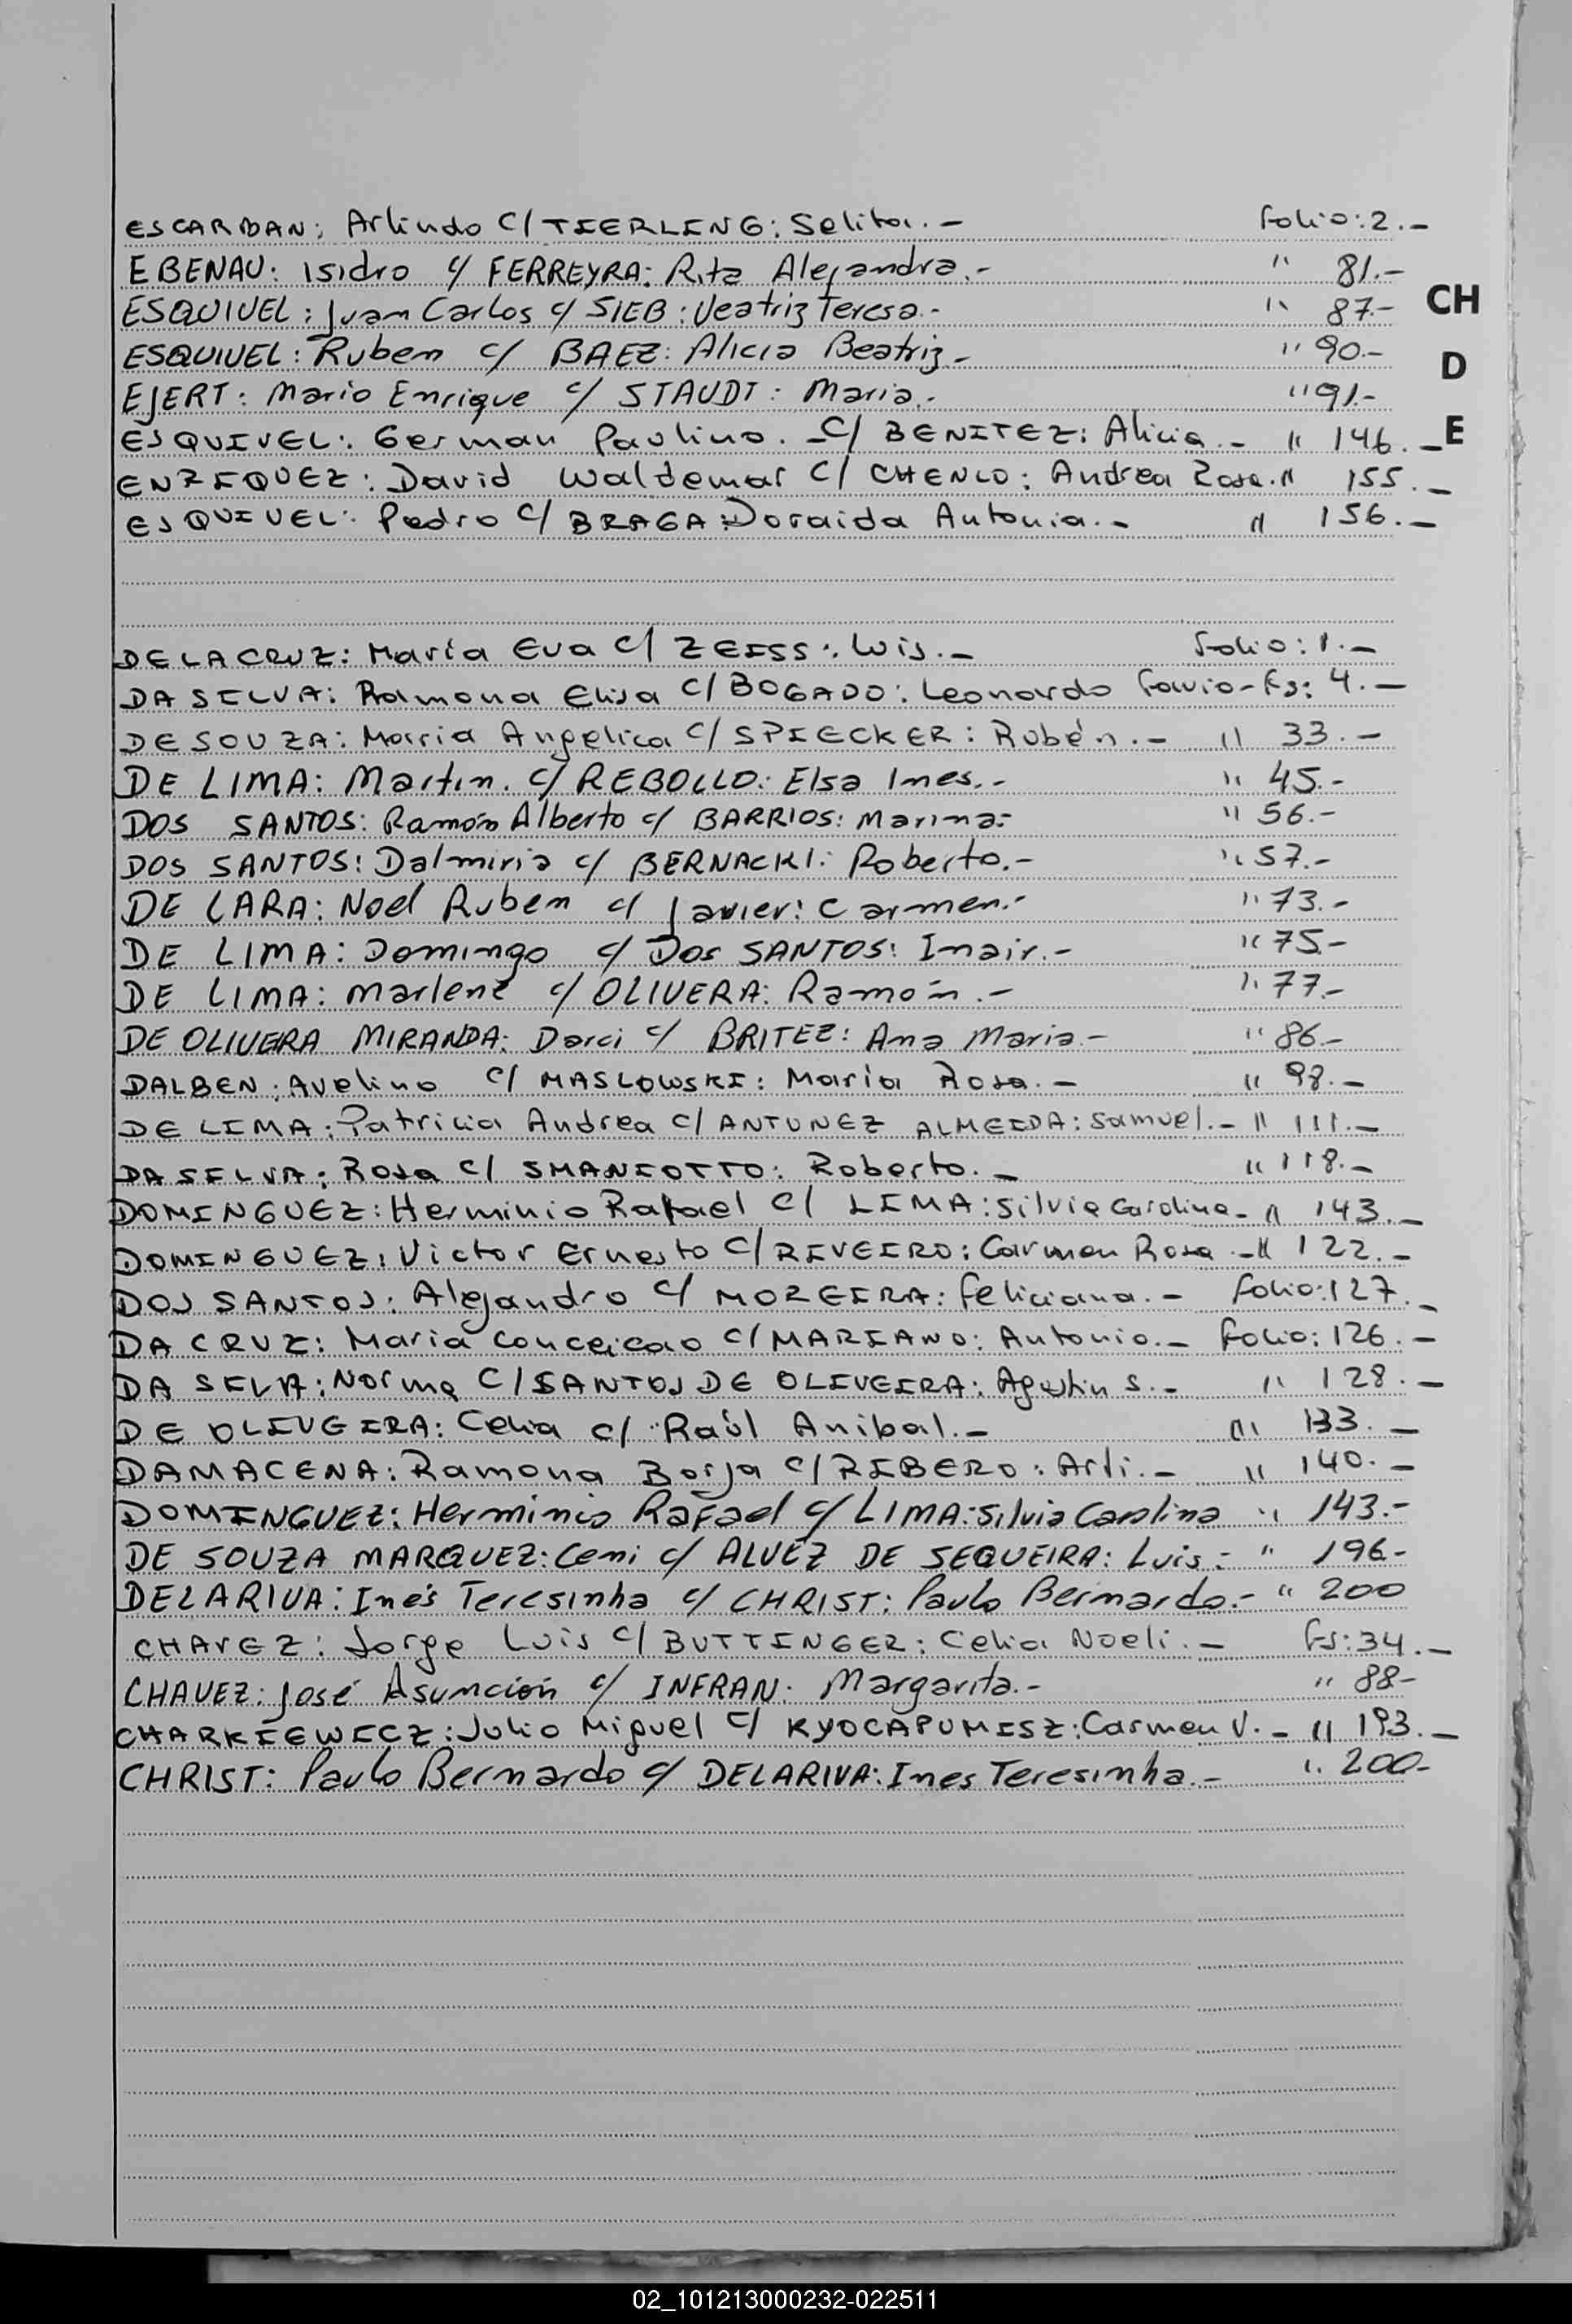 ESCARBAN: Arlindo C/ TIERLING: Selita.- Folio: 2.-
EBENAU: Isidro c/ FERREYRA: Rita Alejandra.- " 81.-
CH
ESQUIVEL: Juan Carlos c/ SIEB: Veatriz Teresa.- " 87.-
ESQUIVEL: Ruben c/ BAEZ: Alicia Beatriz.- " 90.-
D
EJERT: Mario Enrique c/ STAUDT: Maria.- " 91.-
ESQUIVEL: German Paulino. C/ BENITEZ: Alicia.- " 146.-
E
ENRIQUEZ: David Waldemar C/ CHENLO: Andrea Rosa. " 155.-
ESQUIVEL: Pedro C/ BRAGA: Doraida Antonia.- " 156.-
DE LA CRUZ: María Eva C/ ZEISS: Luis.- Folio: 1.-
DA SILVA: Ramona Elisa C/ BOGADO: Leonardo Favio - Fs: 4.-
DE SOUZA: Maria Angelica C/ SPIECKER: Rubén.- " 33.-
DE LIMA: Martin. c/ REBOLLO: Elsa Ines.- " 45.-
DOS SANTOS: Ramón Alberto c/ BARRIOS: Marina.- " 56.-
DOS SANTOS: Dalmiria c/ BERNACKI: Roberto.- " 57.-
DE LARA: Noel Ruben c/ Javier: Carmen.- " 73.-
DE LIMA: Domingo c/ Dos SANTOS: Inair.- " 75.-
DE LIMA: Marlene c/ OLIVERA: Ramón.- " 77.-
DE OLIVERA MIRANDA: Darci c/ BRITEZ: Ana Maria.- " 86.-
DALBEN: Avelino C/ MASLOWSKI: Maria Rosa.- " 98.-
DE LIMA: Patricia Andrea C/ ANTUNEZ ALMEIDA: Samuel.- " 111.-
DA SILVA: Rosa C/ SMANIOTTO: Roberto.- " 118.-
DOMINGUEZ: Herminio Rafael C/ LIMA: Silvia Carolina- " 143.-
DOMINGUEZ: Victor Ernesto C/ RIVEIRO: Carmen Rosa.- " 122.-
DOS SANTOS: Alejandro C/ MOREIRA: Feliciana.- Folio: 127.-
DA CRUZ: Maria Conceicao C/ MARIANO: Antonio.- Folio: 126.-
DA SILVA: Norma C/ SANTOS DE OLIVEIRA: Agustin S.- " 128.-
DE OLIVEIRA: Celia c/ Raúl Anibal.- " 133.-
DAMACENA: Ramona Borja C/ RIBERO: Arli.- " 140.-
DOMINGUEZ: Herminio Rafael c/ LIMA: Silvia Carolina " 143.-
DE SOUZA MARQUEZ: Ceni c/ ALVEZ DE SEQUEIRA: Luis.- " 196.-
DELARIVA: Inés Teresinha c/ CHRIST: Paulo Bernardo.- " 200
CHAVEZ: Jorge Luis C/ BUTTINGER: Celia Noeli.- Fs: 34.-
CHAVEZ: José Asunción c/ INFRAN: Margarita.- " 88-
CHARKIEWICZ: Julio Miguel C/ KYOCAPUMISZ: Carmen V.- " 193.-
CHRIST: Paulo Bernardo c/ DELARIVA: Ines Teresinha.- " 200-
02_101213000232-022511